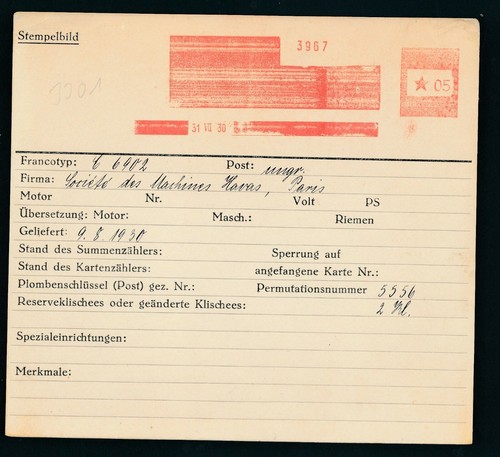 Stempelbild
3967
★ 05
3301
31 VII 30
Francotyp: C 6402 Post: ungr.
Firma: Société des Machines Havas, Paris
Motor Nr. Volt PS
Übersetzung: Motor: Masch.: Riemen
Geliefert: 9. 8. 1930
Stand des Summenzählers: Sperrung auf
Stand des Kartenzählers: angefangene Karte Nr.:
Plombenschlüssel (Post) gez. Nr.: Permutationsnummer 5556
Reserveklischees oder geänderte Klischees: 2 Kl.
Spezialeinrichtungen:
Merkmale: